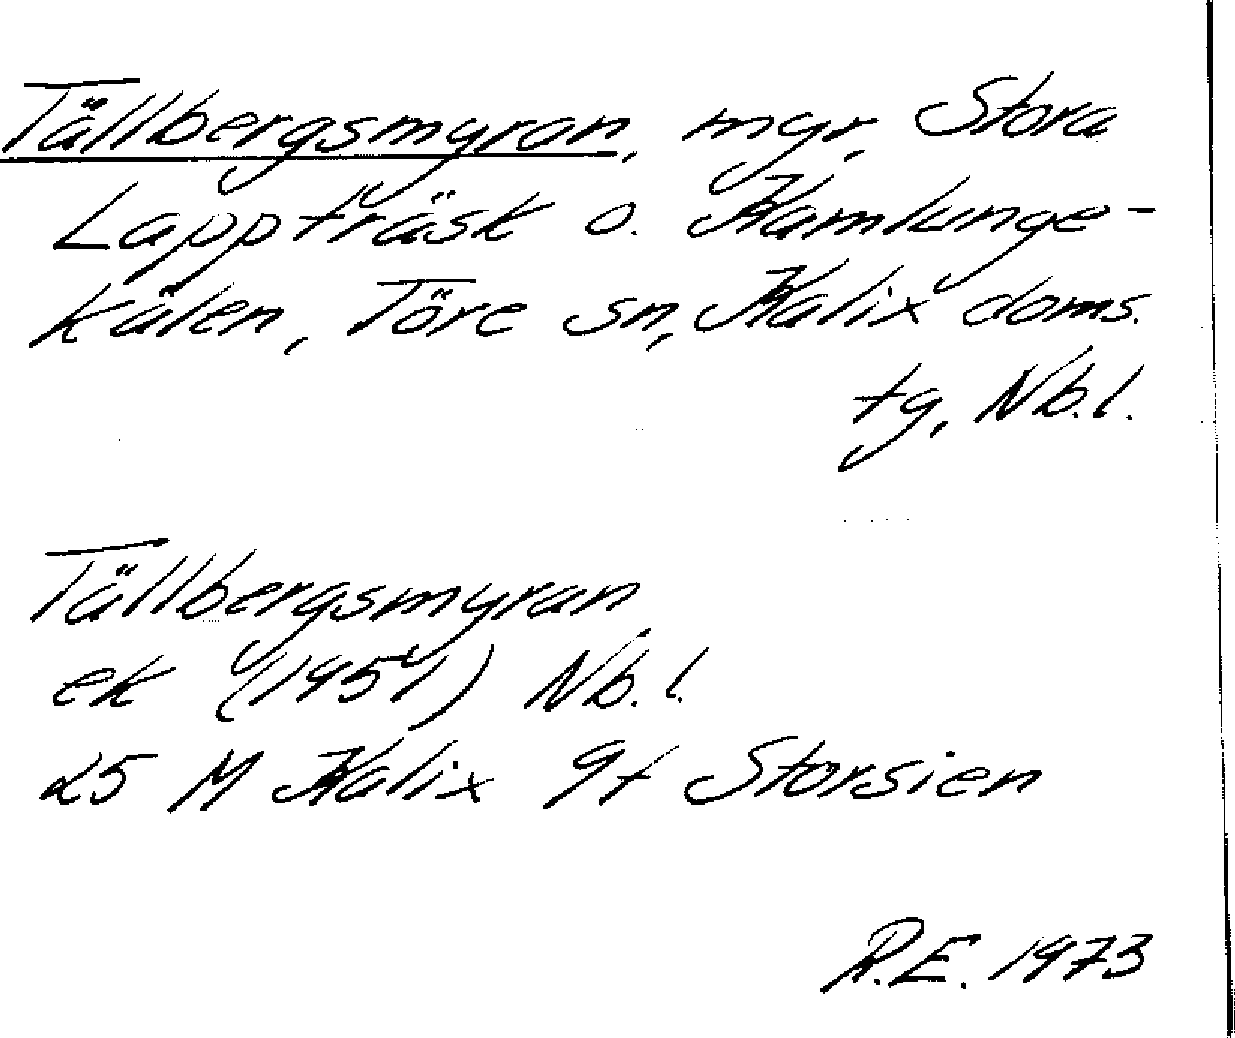 Tällbergsmyran, myr, Stora
Lappträsk o. Kamlunge-
kälen, Töre sn, Kalix doms.
tg, Nb.l.
Tällbergsmyran
ek (1951) Nb.l.
25 M Kalix 9f Storsien
R.E. 1973